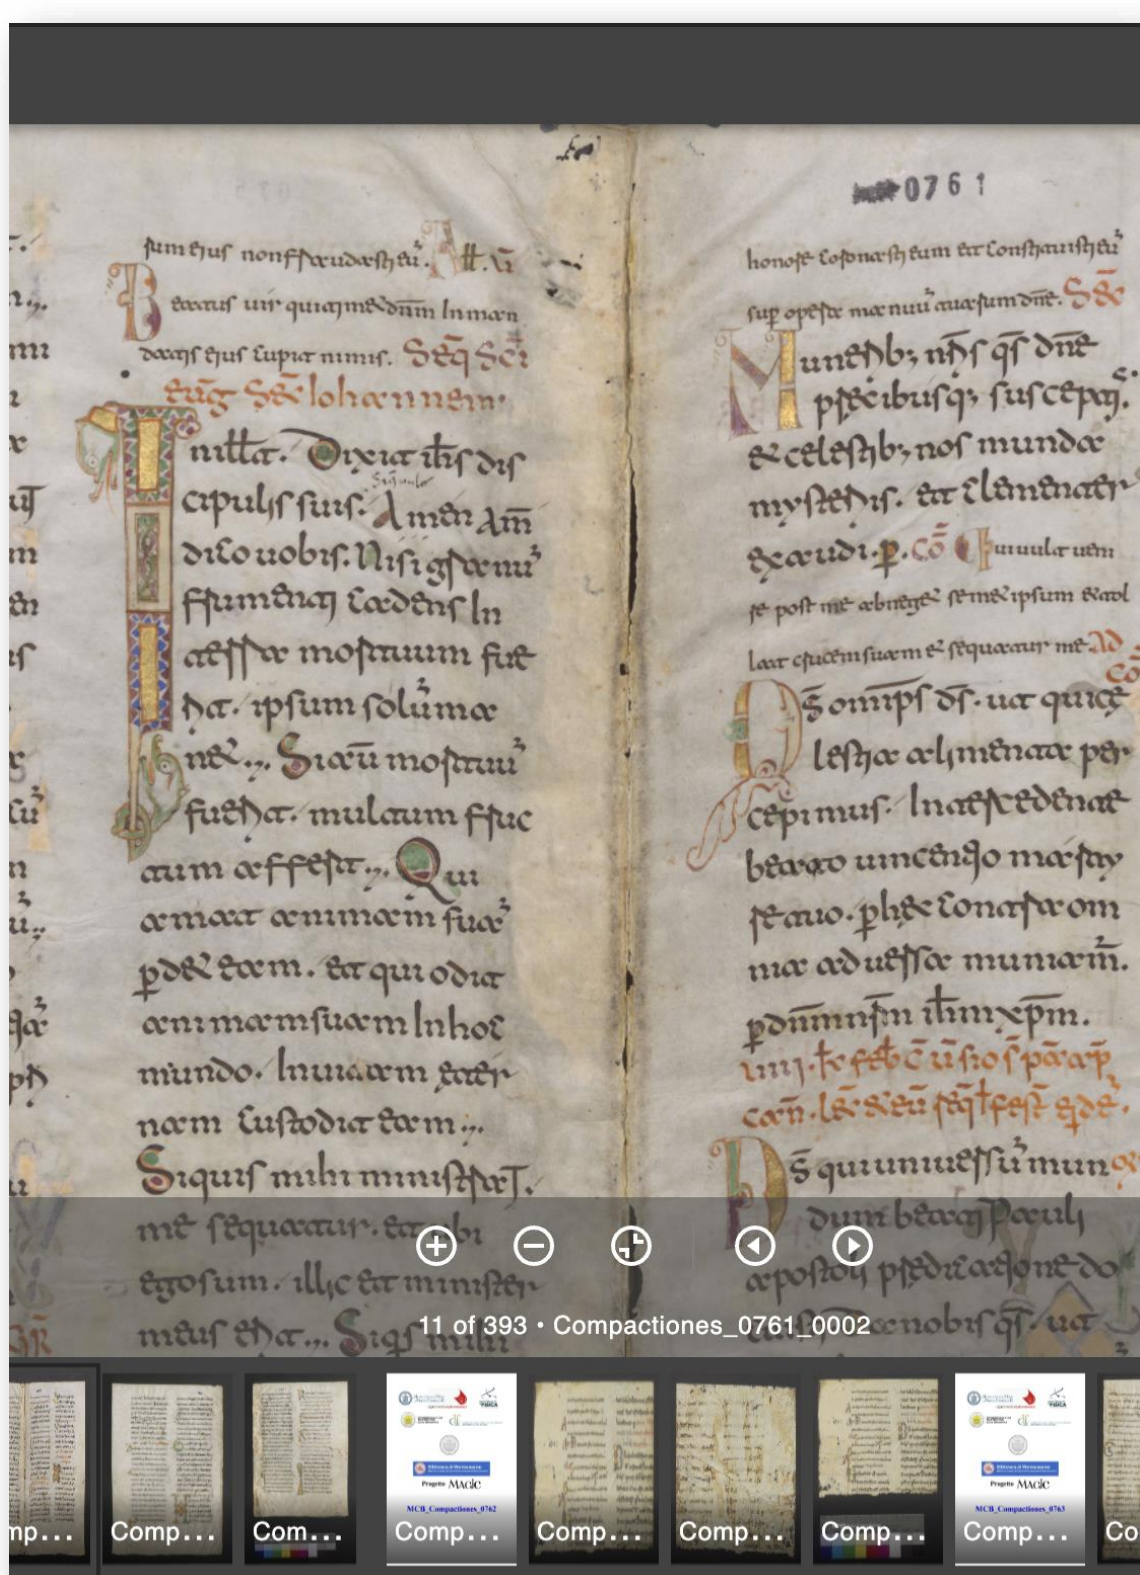 rum eius non fraudasti eū. All. ū
Beatus uir qui timet dn̄m In man
datis eius cupit nimis. Seq̄ Sc̄i
Eūg Sēc Iohannem.
In illt̄. Dixit ih̄s dis
cipulis suis. Amen Am̄
dico uobis. Nisi granū
frumenti cadens In
terra mortuum fue
rit. ipsum solū ma
net. Si aū mortuū
fuerit. multum fruc
tum affert. Qui
amat animam suā
p̄det eam. Et qui odit
animam suam In hoc
mundo. In uitam ęter
nam custodit eam.
Siquis mihi ministrat.
me sequatur. et ubi
ego sum. illic et minister
meus erit. Siqs mihi
0761
honore coronasti eum et constituisti eū
sup̄ opera manuū tuarum dn̄e. Sēc
Munerib; nr̄is qs̄ dn̄e
precibusq; susceptis.
et celestib; nos munda
mysteriis. et clementer
exaudi. p̄. Cō Qui uult ueni
re post me abneget semet ipsum et tol
lat crucem suam et sequatur me Ad
Cō
Qs̄ omīps ds̄. ut qui cę
lestia alimenta per
cepimus. Intercedente
beato uincentio marty
re tuo. p̄ hęc contra om
nia aduersa muniam̄.
p̄ dn̄m nr̄m ih̄m xp̄m.
Ds̄ qui uniuersū mun
dum beati Pauli
apostoli predicatione do
cuisti. da nobis qs̄. ut
11 of 393 • Compactiones_0761_0002
mp... Comp... Com... Comp... Comp... Comp... Comp... Comp... Co
Progetto MAGIC
MCB_Compactiones_0762
Progetto MAGIC
MCB_Compactiones_0763